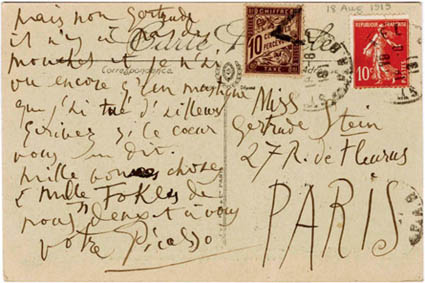 mais non Gertrude
il n'y a pas de
mouches et je n'ai
vu encore qu'un mustique
que j'ai tué d'ailleurs
si le coeur
vous en dit.
mille bonnes choses
mille de
nous deux à vous
votre Picasso
Carte Postale
Correspondance
CHIFFRE
10
CENTIMES
PERCEVOIR
18 Aug 1919
REPUBLIQUE FRANÇAISE
10c
POSTES
Miss
Gertrude Stein
27 R. de Fleurus
PARIS